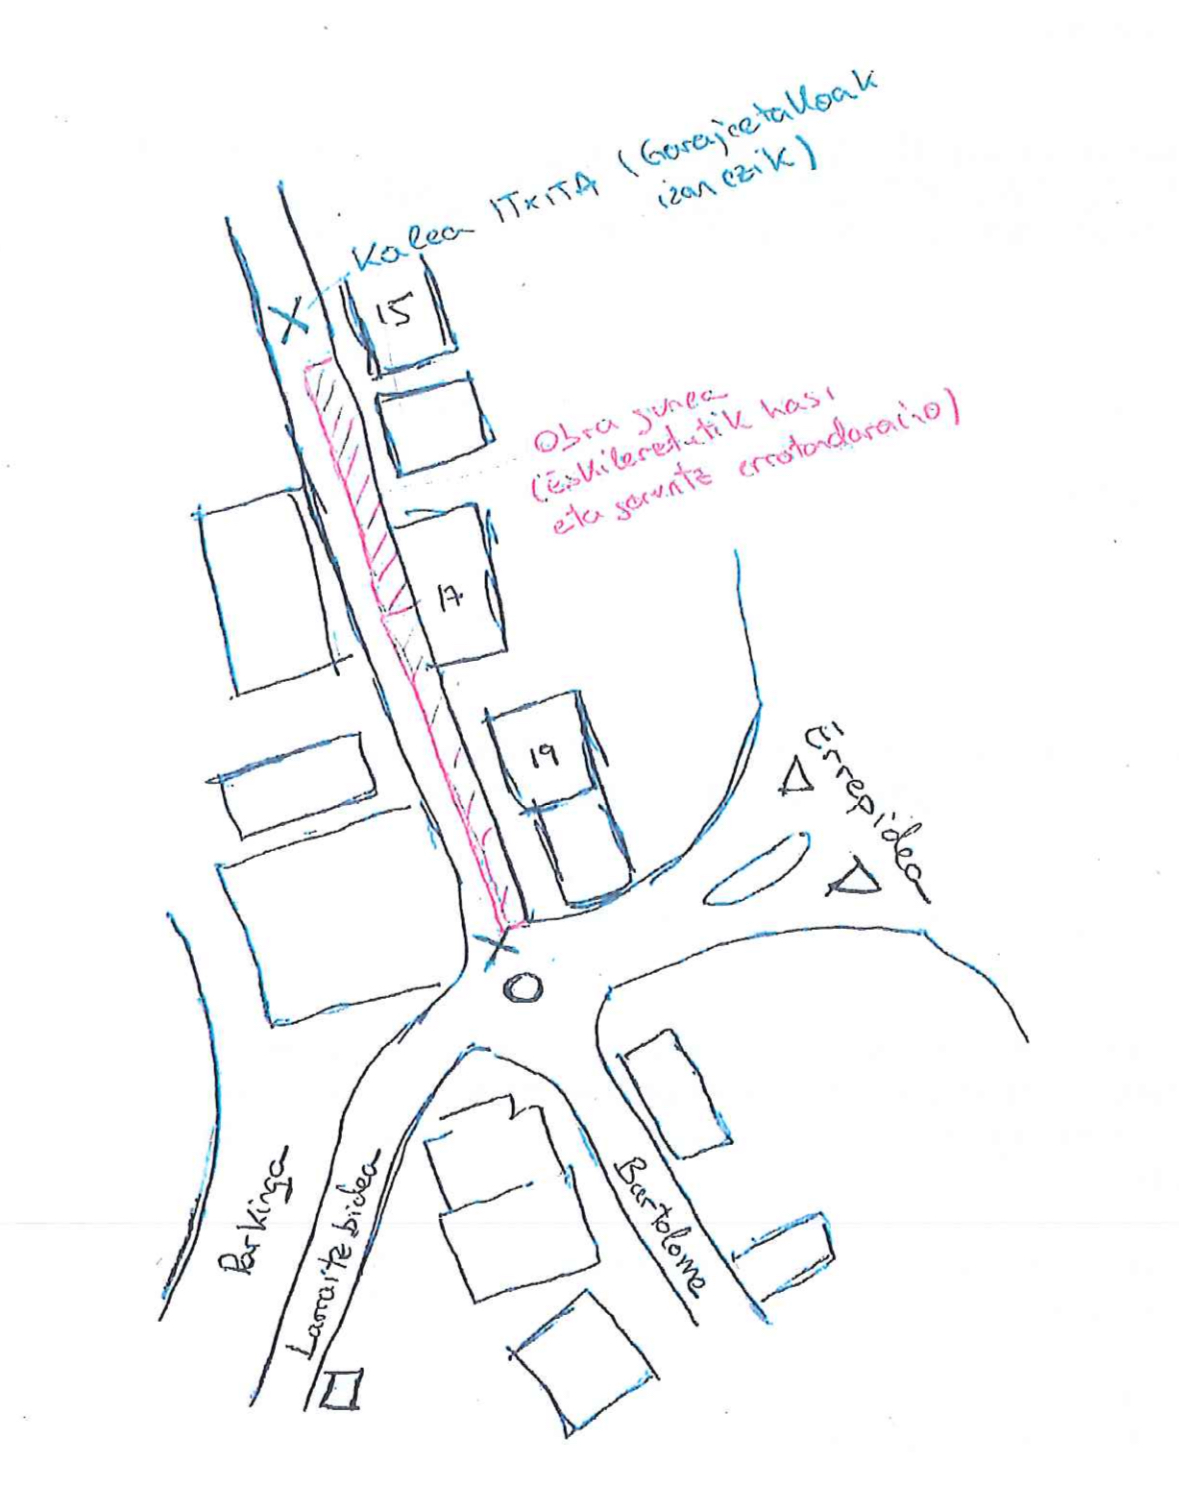 Kalea ITXITA (Garajeetakoak
izan ezik)
15
Obra gunea
(Eskileretatik hasi
eta goruntz errotondaraino)
17
19
Errepidea
Parkinga
Larraitz bidea
Bartolome